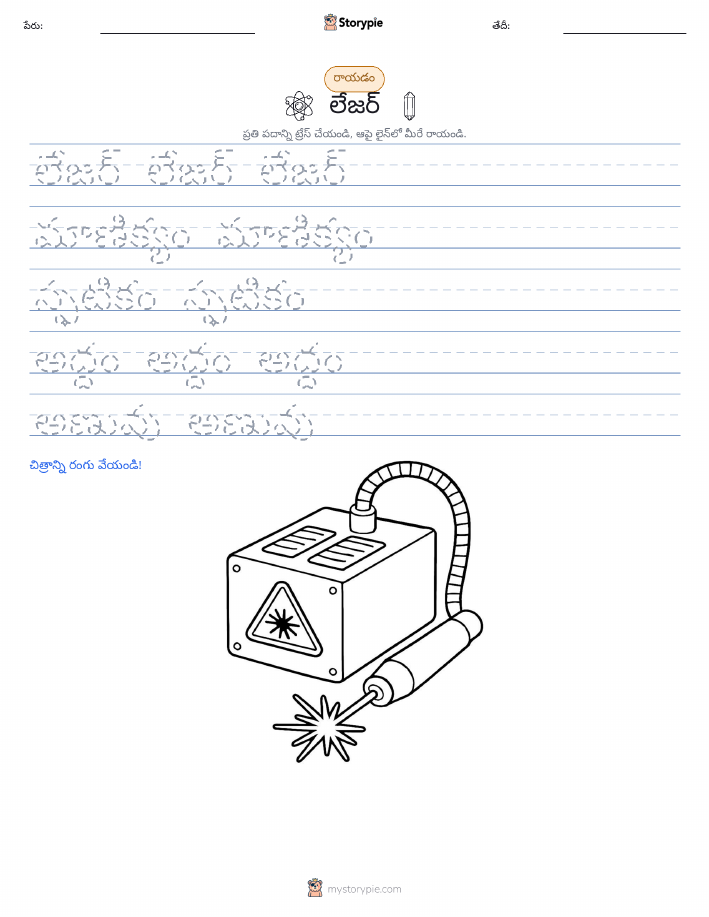 పేరు:
Storypie
తేదీ:
రాయడం
లేజర్
ప్రతి పదాన్ని ట్రేస్ చేయండి, ఆపై లైన్‌లో మీరే రాయండి.
లేజర్ లేజర్ లేజర్
మాణిక్యం మాణిక్యం
స్ఫటికం స్ఫటికం
అద్దం అద్దం అద్దం
అణువు అణువు
చిత్రాన్ని రంగు వేయండి!
mystorypie.com